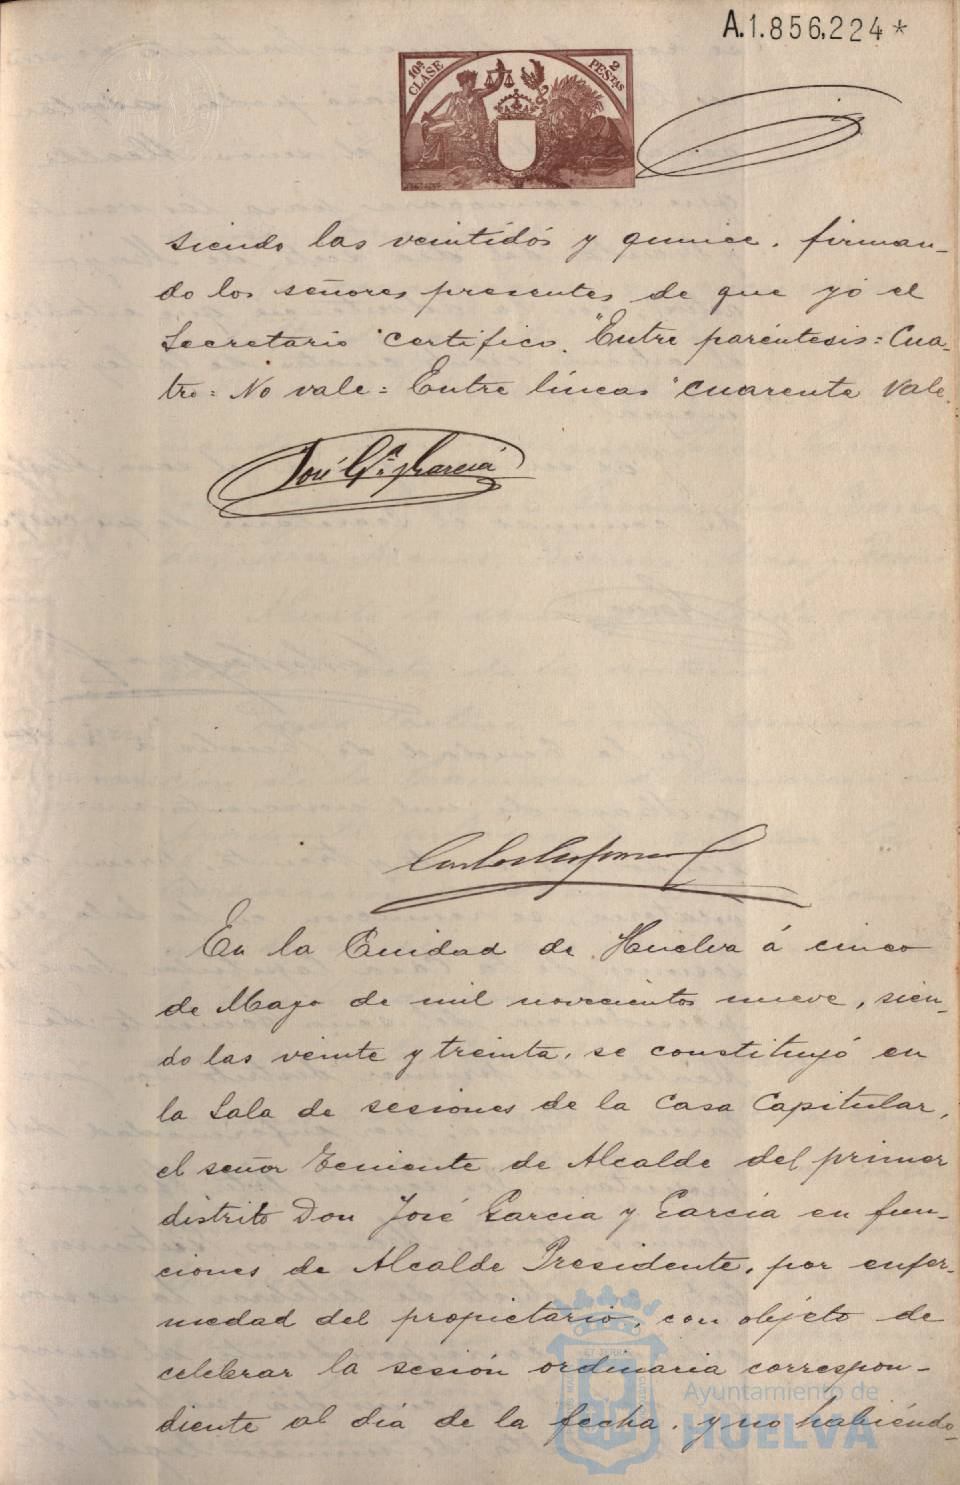 A.1.856.224*
10ª CLASE
2 PESTAS
siendo las veintidós y quince, firman-
do los señores presentes de que yó el
Secretario certifico. "Entre paréntesis = Cua-
tro = No vale = Entre líneas "cuarenta vale.
José Gª. y García
En la Ciudad de Huelva á cinco
de Mayo de mil novecientos nueve, sien-
do las veinte y treinta, se constituyó en
la Sala de sesiones de la Casa Capitular,
el señor Teniente de Alcalde del primer
distrito Don José García y García en fun-
ciones de Alcalde Presidente, por enfer-
medad del propietario, con objeto de
celebrar la sesión ordinaria correspon-
diente al día de la fecha, y no habiéndo-
Ayuntamiento de
HUELVA